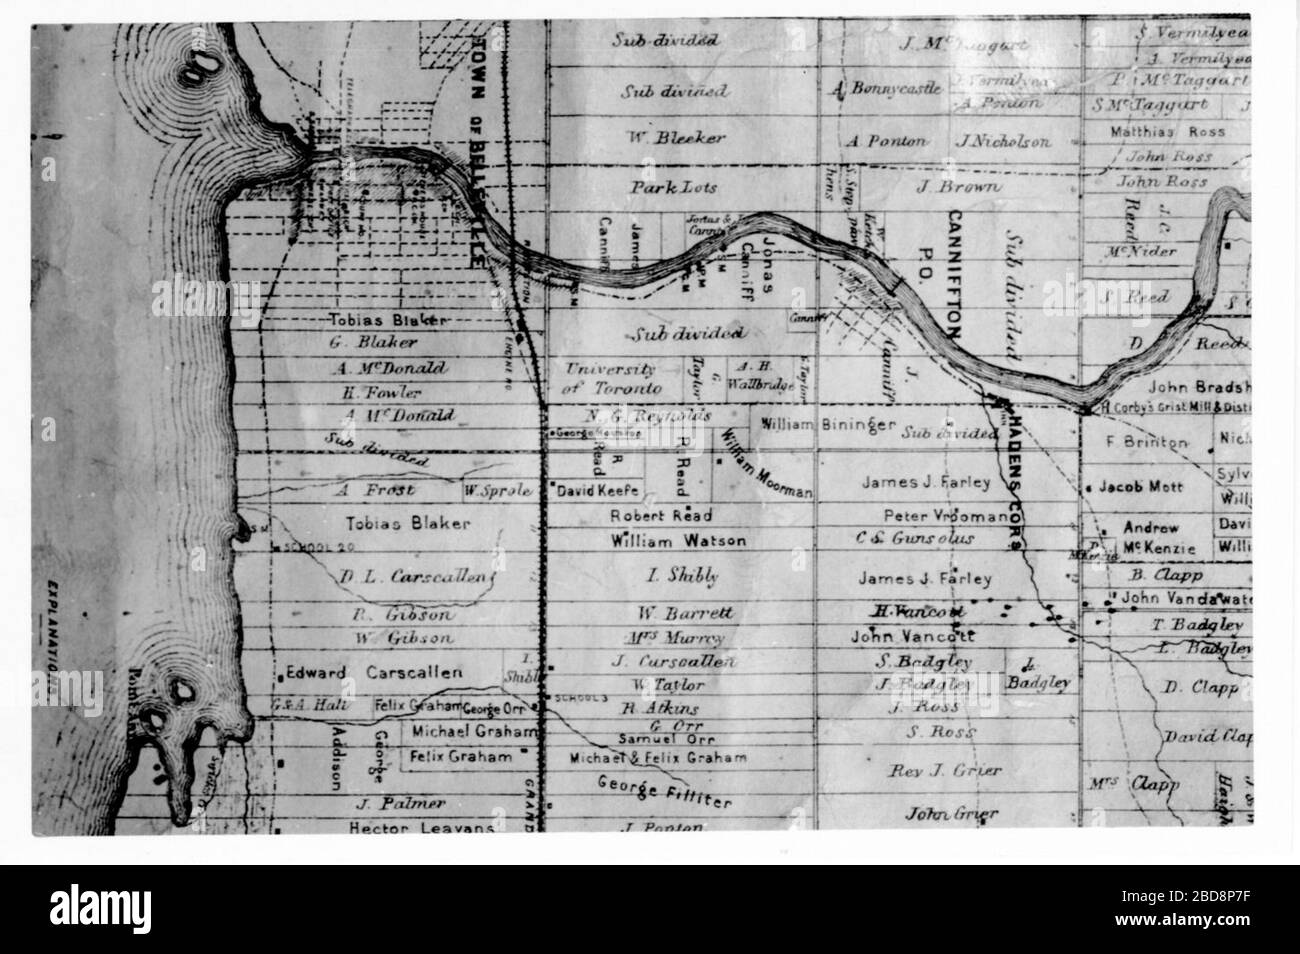 TOWN OF BELLEVILLE
Sub-divided
Sub divided
W. Bleeker
Park Lots
James Canniff
Jonas Canniff
Sub divided
University of Toronto
G. Taylor
A. H. Wallbridge
G. Taylor
N. G. Reynolds
R Read
R. Read
William Moorman
William Bininger
David Keefe
Robert Read
William Watson
I. Shibly
W. Barrett
Mrs Murrey
J. Carscallen
W. Taylor
SCHOOL 3
R. Atkins
G. Orr
Samuel Orr
Michael & Felix Graham
George Filliter
J. Ponton
J. McTaggart
A Bonnycastle
J. Vermilyea
A. Ponton
A Ponton
J. Nicholson
J. Brown
CANNIFTON P.O.
Sub divided
J. Canniff
Sub divided
HADENS CORS
James J. Farley
Peter Vrooman
C & Gunsolus
James J. Farley
H. Vancott
John Vancott
S. Badgley
J. Badgley
L. Badgley
J. Ross
S. Ross
Rev J. Grier
John Grier
S. Vermilyea
J. Vermilyea
P. McTaggart
S McTaggart
Matthias Ross
John Ross
John Ross
J. C. Reed
McNider
S. Reed
D. Reed
John Bradsh
H. Corby's Grist Mill & Disti
F. Brinton
Nich
Jacob Mott
Sylv
Willi
Andrew McKenzie
Davi
Willi
B. Clapp
John Vandawate
T. Badgley
L. Badgley
D. Clapp
David Clap
Mrs Clapp
Tobias Blaker
G. Blaker
A. McDonald
H. Fowler
A McDonald
Sub divided
A Frost
W. Sprole
Tobias Blaker
S.M
SCHOOL 20
D. L. Carscallen
R. Gibson
W. Gibson
Edward Carscallen
I. Shibly
G & A. Hall
Felix Graham
George Orr
Michael Graham
Felix Graham
Addison
George
J. Palmer
Hector Leavans
GRAND
EXPLANATIONS
alamy
Image ID: 2BD8P7F
www.alamy.com